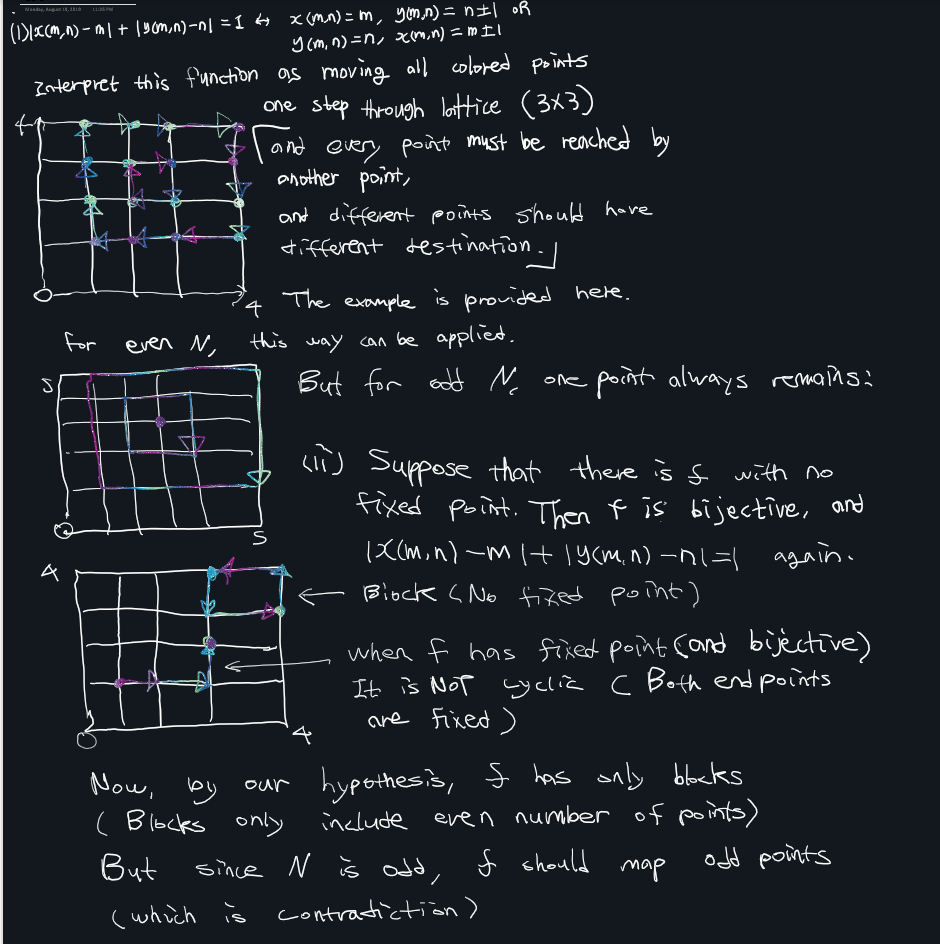 Monday, August 19, 2019 11:05 PM
(1) |x(m,n)-m| + |y(m,n)-n| = 1 ↔ x(m,n) = m, y(m,n) = n±1 OR
y(m,n) = n, x(m,n) = m±1
Interpret this function as moving all colored points
one step through lattice (3×3)
4
and every point must be reached by
another point,
and different points should have
different destination.
0
4
The example is provided here.
For even N, this way can be applied.
5
But for odd N, one point always remains:
(ii) Suppose that there is f with no
fixed point. Then f is bijective, and
0
5
|x(m,n)-m|+|y(m,n)-n|=1 again.
4
← Block (No fixed point)
when f has fixed point (and bijective)
It is NOT cyclic (Both endpoints
are fixed)
0
4
Now, by our hypothesis, f has only blocks
(Blocks only include even number of points)
But since N is odd, f should map odd points
(which is contradiction)